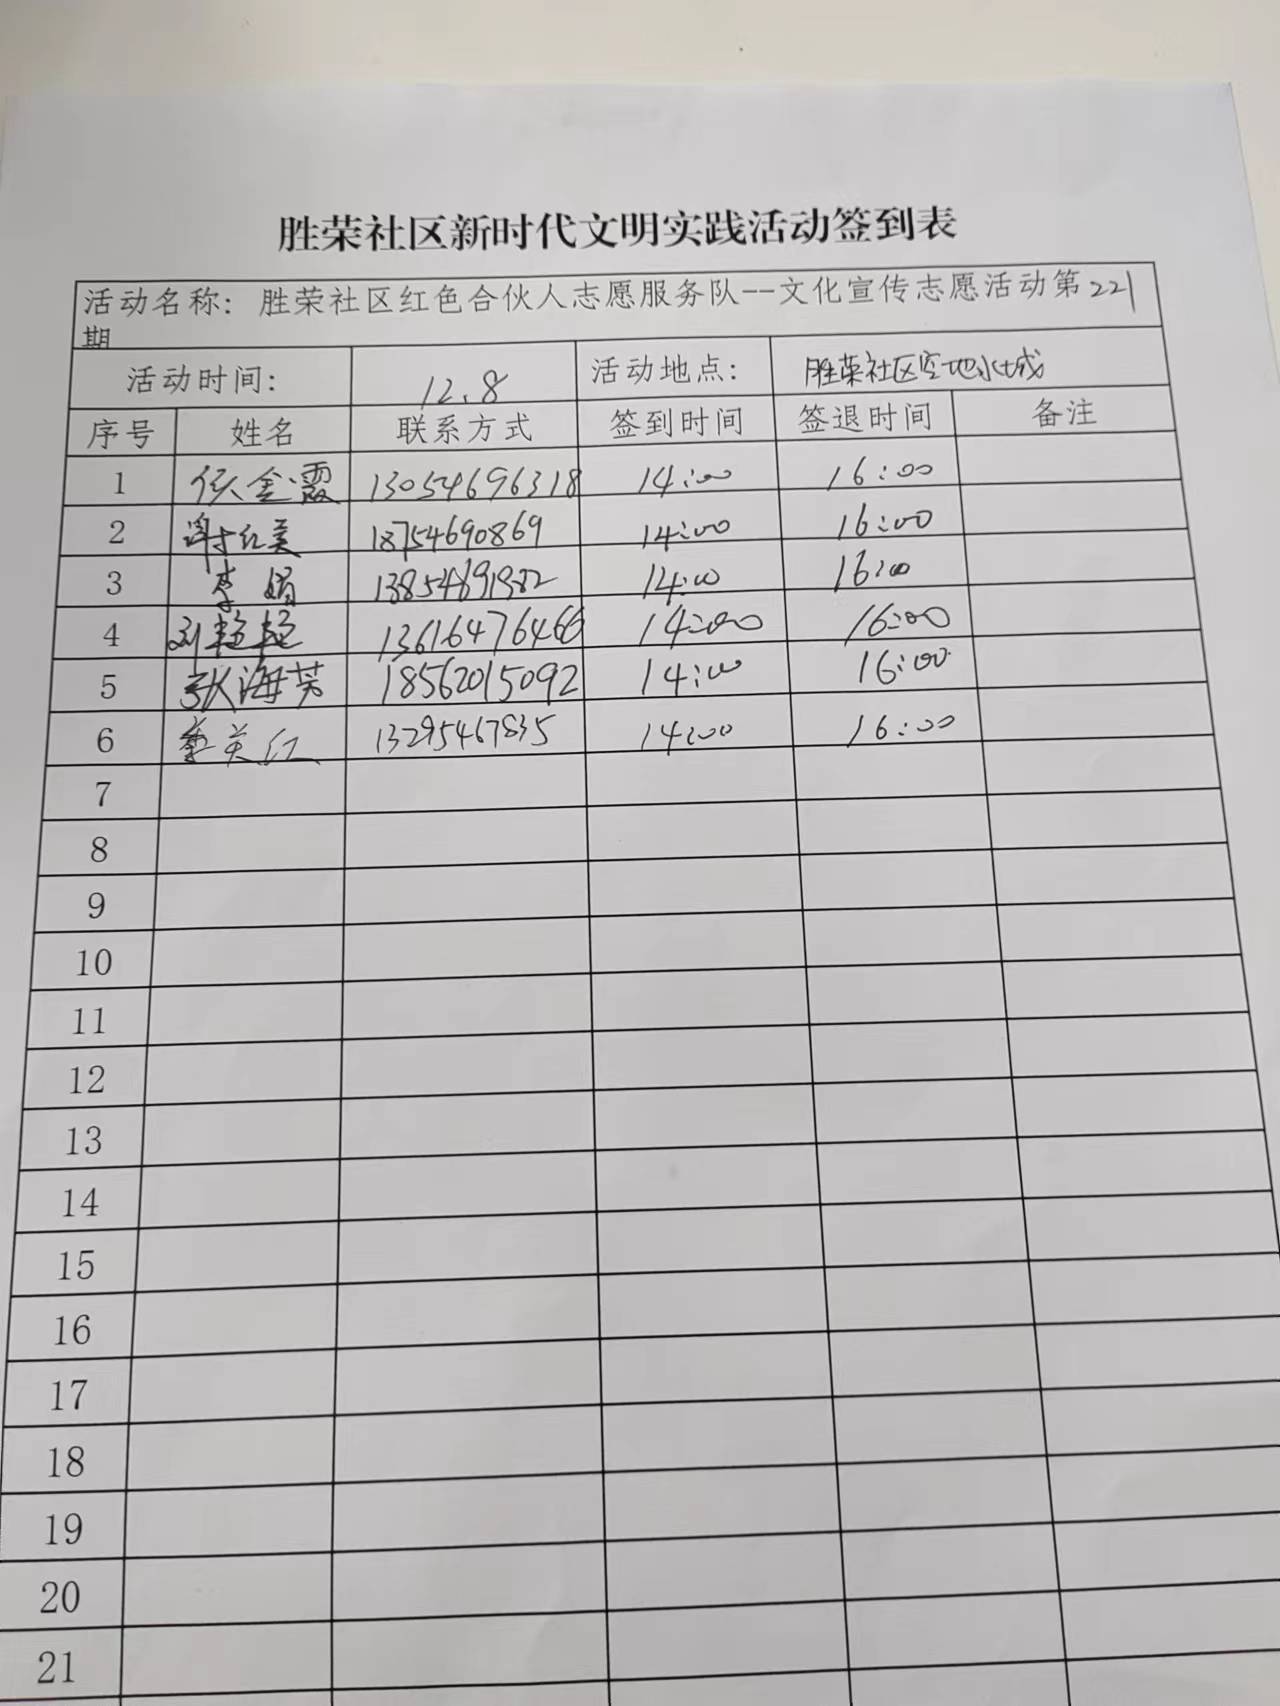 胜荣社区新时代文明实践活动签到表
活动名称：胜荣社区红色合伙人志愿服务队--文化宣传志愿活动第221
期
活动时间： 12.8 活动地点： 胜荣社区空地水城
序号 姓名 联系方式 签到时间 签退时间 备注
1 任金霞 13054696318 14:00 16:00
2 谢红美 18754690869 14:00 16:00
3 李娟 14:00 16:00
4 刘艳艳 13616476466 14:00 16:00
5 张海芳 18562015092 14:00 16:00
6 英红 13295467835 14:00 16:00
7
8
9
10
11
12
13
14
15
16
17
18
19
20
21